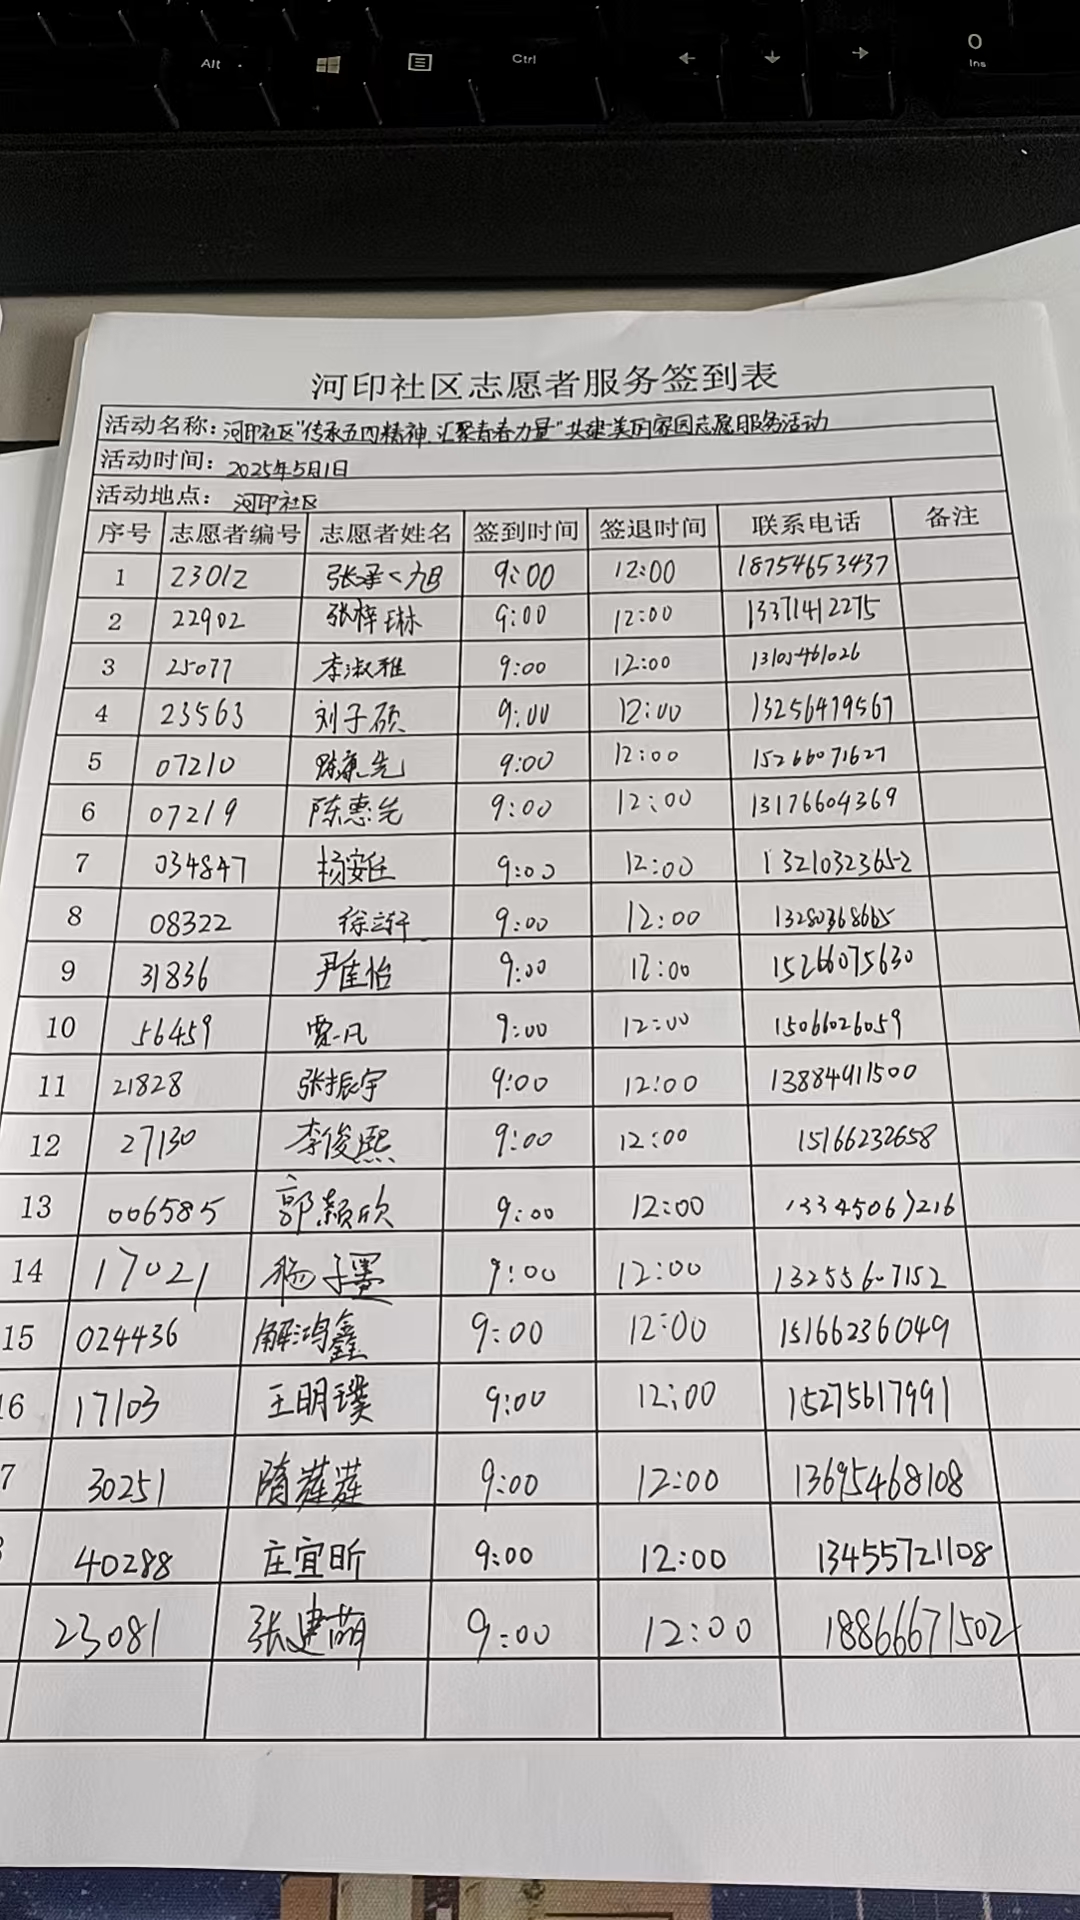 Alt
Ctrl
0
Ins
河印社区志愿者服务签到表
活动名称: 河印社区"传承五四精神.汇聚青春力量"共建美好家园志愿服务活动
活动时间: 2025年5月1日
活动地点: 河印社区
序号 志愿者编号 志愿者姓名 签到时间 签退时间 联系电话 备注
1 23012 9:00 12:00 18754653437
2 22902 张梓琳 9:00 12:00 13371412275
3 25077 李淑雅 9:00 12:00 13105461026
4 23563 刘子硕 9:00 12:00 13256479567
5 07210 9:00 12:00 15266071627
6 07219 陈惠先 9:00 12:00 13176604369
7 034847 杨安任 9:00 12:00 13210323652
8 08322 9:00 12:00 13280368665
9 31836 尹佳怡 9:00 12:00 15266075630
10 56459 9:00 12:00 15066026059
11 21828 张振宇 9:00 12:00 13884911500
12 27130 李俊熙 9:00 12:00 15166232658
13 006585 郭颖欣 9:00 12:00
14 17021 杨子墨 9:00 12:00 13255607152
15 024436 解鸿鑫 9:00 12:00 15166236049
16 17103 王明璞 9:00 12:00 15275617991
7 30251 隋莛莛 9:00 12:00 13695468108
40288 庄宜昕 9:00 12:00 13455721108
23081 张建萌 9:00 12:00 18866671502